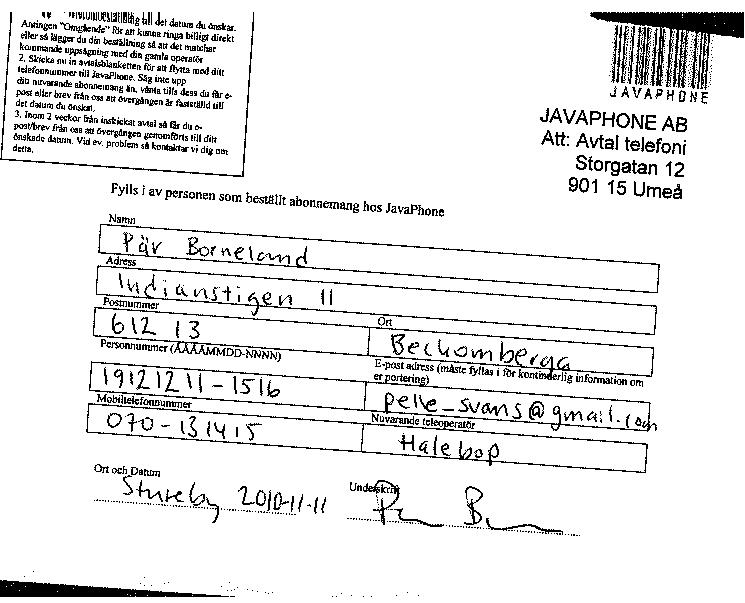 till det datum du önskar.
Antingen "Omgående" för att kunna ringa billigt direkt
eller så lägger du din beställning så att det matchar
kommande uppsägning med din gamla operatör
2. Skicka nu in avtalsblanketten för att flytta med ditt
telefonnummer till JavaPhone. Säg inte upp
ditt nuvarande abonnemang än, vänta tills dess du får e-
post eller brev från oss att övergången är fastställd till
det datum du önskat.
3. Inom 2 veckor från inskickat avtal så får du e-
post/brev från oss att övergången genomförts till ditt
önskade datum. Vid ev. problem så kontaktar vi dig om
detta.
JAVAPHONE
JAVAPHONE AB
Att: Avtal telefoni
Storgatan 12
901 15 Umeå
Fylls i av personen som beställt abonnemang hos JavaPhone
Namn
Pär Borneland
Adress
Indianstigen 11
Postnummer Ort
612 13 Beckomberga
Personnummer (ÅÅÅÅMMDD-NNNN) E-post adress (måste fyllas i för kontinderlig information om
er portering)
19121211-1516 pelle_svans@gmail.com
Mobiltelefonnummer Nuvarande teleoperatör
070-131415 Halebop
Ort och Datum Underskrift
Stureby 2010-11-11